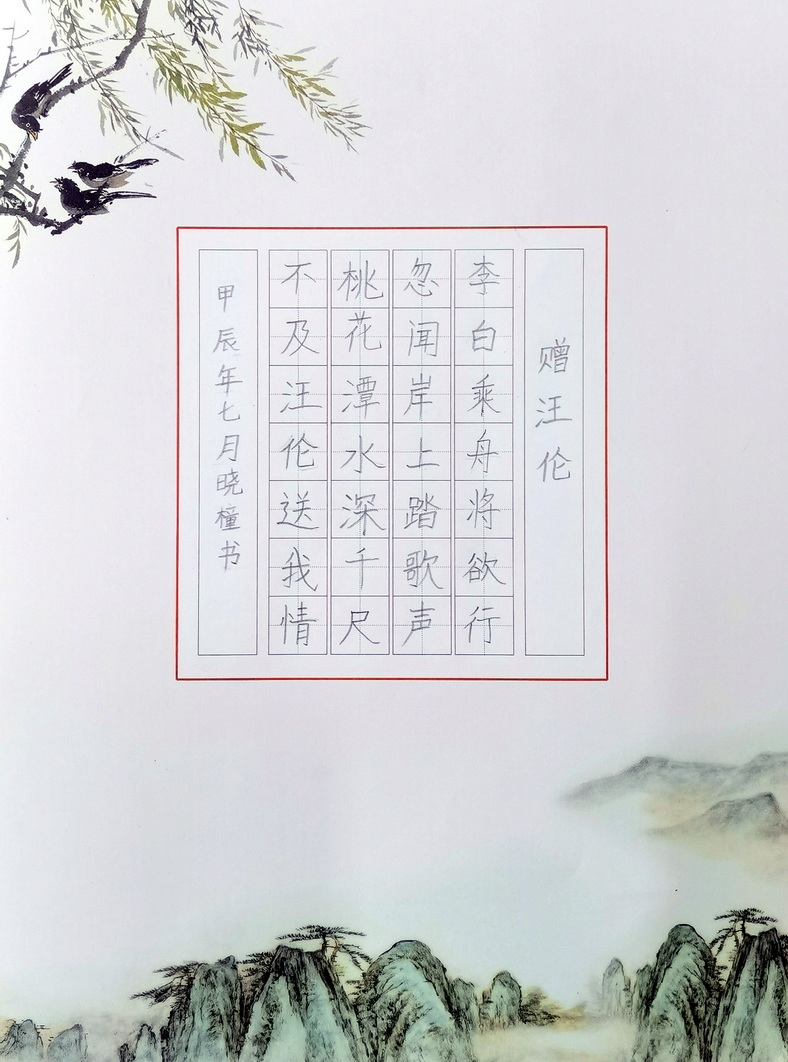 赠汪伦
李白乘舟将欲行
忽闻岸上踏歌声
桃花潭水深千尺
不及汪伦送我情
甲辰年七月晓橦书